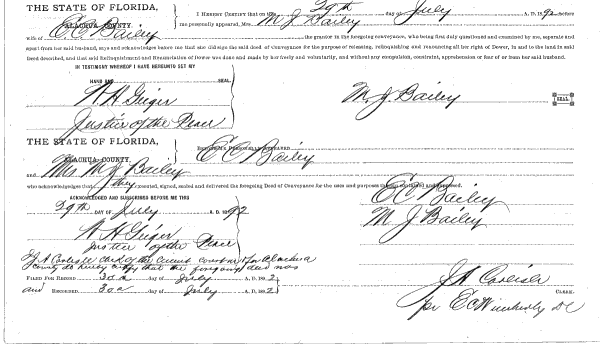 THE STATE OF FLORIDA,
ALACHUA COUNTY.
I HEREBY CERTIFY that on this 29th day of July A. D. 1892 before
me personally appeared, Mrs. M J Bailey
wife of E C Bailey the grantor in the foregoing conveyance, who being first duly questioned and examined by me, separate and
apart from her said husband, says and acknowledges before me that she did sign the said deed of Conveyance for the purpose of releasing, relinquishing and renouncing all her right of Dower, in and to the land in said
deed described, and that said Relinquishment and Renunciation of Dower was done and made by her freely and voluntarily, and without any compulsion, constraint, apprehension or fear of or from her said husband.
IN TESTIMONY WHEREOF I HAVE HEREUNTO SET MY
HAND AND SEAL.
N H Geiger
M. J. Bailey SEAL
Justice of the Peace
THE STATE OF FLORIDA,
ALACHUA COUNTY.
PERSONALLY APPEARED E C Bailey
and Mrs M J Bailey
who acknowledges that they executed, signed, sealed and delivered the foregoing Deed of Conveyance for the uses and purposes therein contained and expressed.
ACKNOWLEDGED AND SUBSCRIBED BEFORE ME THIS
E C Bailey
29th DAY OF July A. D. 1892
M J Bailey
N H Geiger
Justice of the Peace
I J A Carlisle clerk of the circuit court for Alachua
county do hereby certify that the foregoing deed was
FILED FOR RECORD 30th day of July A. D. 1892
J A Carlisle CLERK.
and RECORDED 30th day of July A. D. 1892
per E C Wimberly D C